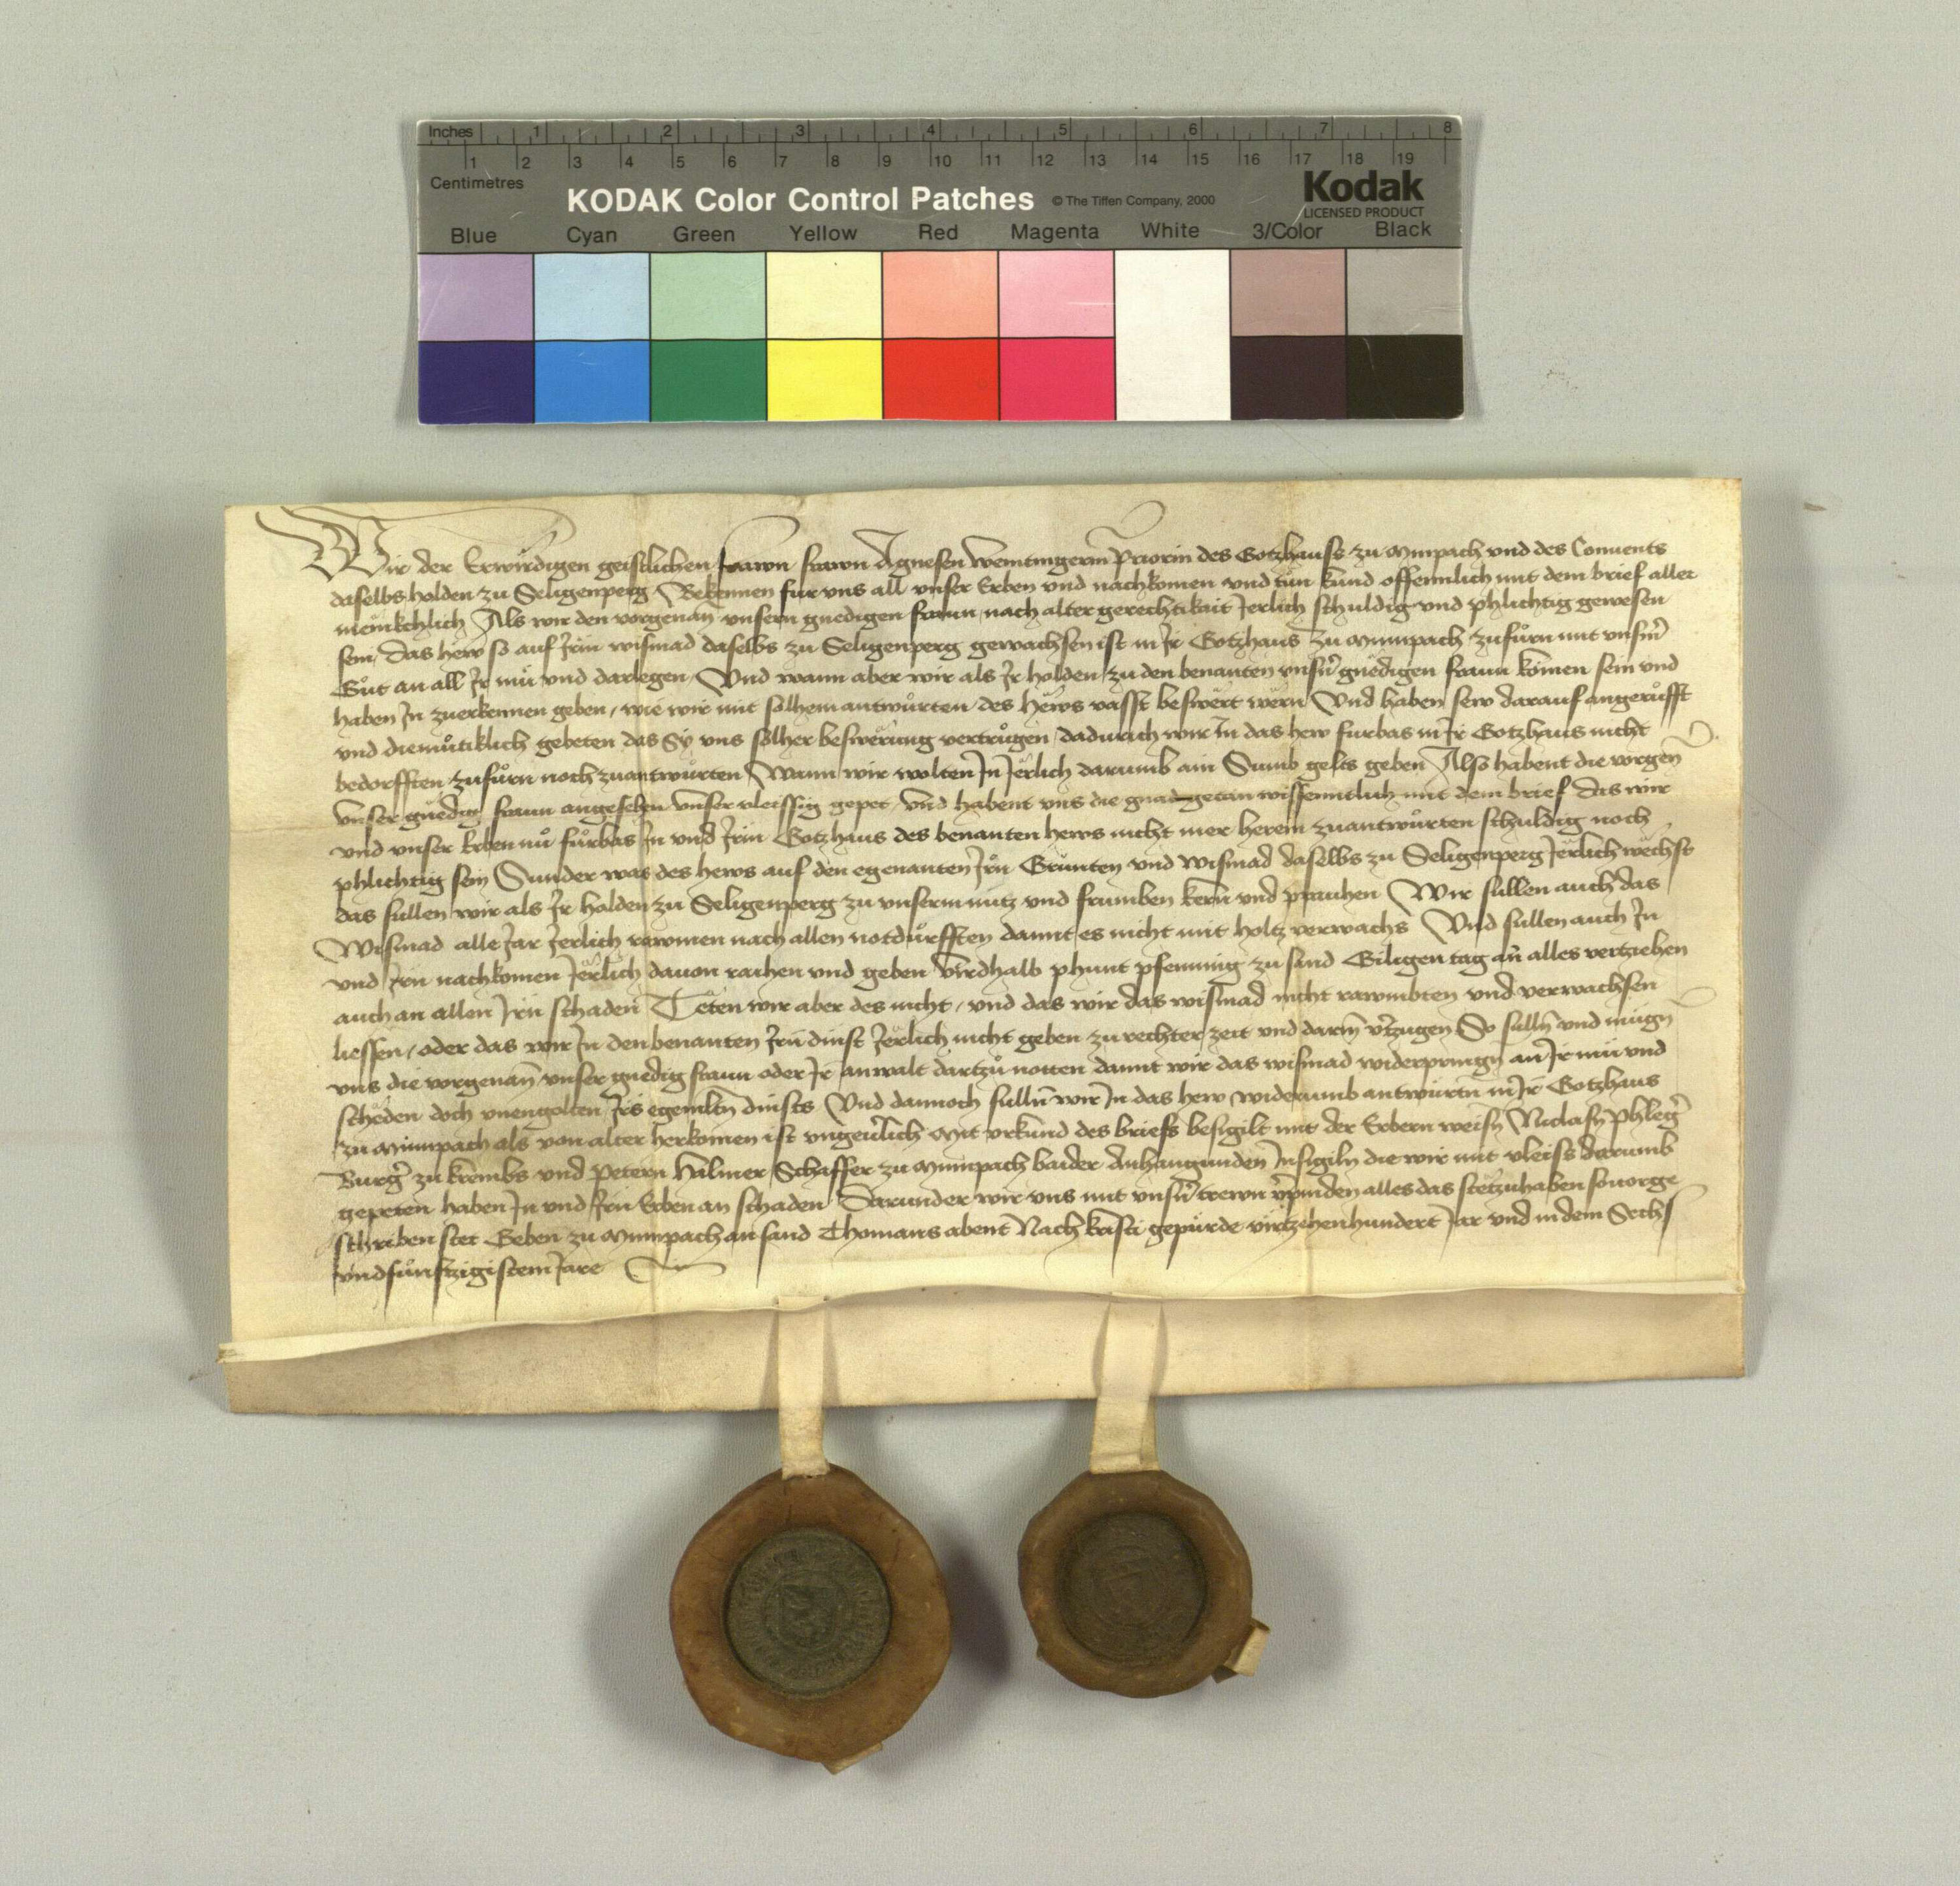 Inches 1 2 3 4 5 6 7 8
1 2 3 4 5 6 7 8 9 10 11 12 13 14 15 16 17 18 19
Centimetres
KODAK Color Control Patches © The Tiffen Company, 2000 Kodak
LICENSED PRODUCT
Blue Cyan Green Yellow Red Magenta White 3/Color Black
Wir der Erwirdigen geistlichen frawn frawn Agnesen Priorin des Gotzhauss zu Mimpach vnd des Conuents
daselbs holden zu Seligenperg Bekennen fur vns all vnser Erben vnd nachkomen vnd tůn kund offennlich mit dem brief aller
menikchlich Als wir den vorgenan̄ vnsern gnedigen fraun nach alter gerechtikait Jerlich schuldig vnd phlichtig gewesen
sein das hew so auf Irm wismad daselbs zu Seligenperg gewachsen ist in Ir Gotzhaus zu Mimpach zufůrn mit vnsm̄
Gůt an all Ir mů vnd darlegen Vnd wann aber wir als Ir holden zu den benanten vnsn̄ gnedigen fraun komen sein vnd
haben In zuerkennen geben wie wir mit solhem antwůrten des hews vasst beswert wern Vnd haben sew darauf angerůfft
vnd diemůtiklich gebeten das Sy vns solher beswerung vertrůgen dadurch wir In das hew furbas in Ir Gotzhaus nicht
bedorfften zufůrn noch zuantwůrten Wann wir wolten In Jerlich darumb ain Sumb gelts geben Also habent die vorgen̄
vnser gnedig fraun angesehen vnser vleissig gepet vnd habent vns die gnad getan wissenntlich mit dem brief das wir
vnd vnser Erben nů fůrbas In vnd Irm Gotzhaus des benanten hews nicht mer herein zuantwůrten schuldig noch
phlichtig sein Sunder was des hews auf den egenanten Irn Grůnten vnd wismad daselbs zu Seligenperg Jerlich wechst
das sullen wir als Ir holden zu Seligenperg zu vnserm nutz vnd frumben kern vnd prauhen Wir sullen auch das
Wismad alle Jar Jerlich rawmen nach allen notdůrfften damit es nicht mit holtz verwachs Vnd sullen auch In
vnd Irn nachkomen Jerlich dauon raihen vnd geben virdhalb phunt pfenning zu sand Giligen tag an alles vertziehen
auch an allen Irn schaden Teten wir aber des nicht vnd das wir das wismad nicht rawmbten vnd verwachsen
liessen oder das wir In den benanten Irn dinst Jerlich nicht geben zu rechter zeit vnd darin v̄tzugen So sulln̄ vnd mugn̄
vns die vorgenan̄ vnser gnedig fraun oder Ir anwalt dartzů notten damit wir das wismad widerpringn̄ an Ir mů vnd
scheden doch vnengolten Irs egemltn̄ dinsts Vnd dannoch sulln̄ wir In das hew widerumb antwurtn̄ in Ir Gotzhaus
zu Mimpach als von alter herkomen ist vngeu̇lich Mit vrkund des briefs besigilt mit der Erbern weisn̄ Niclasn̄ Phleḡ
Burḡ zu Krembs vnd Petern Schaffer zu Mimpach baider Anhangunden Insigiln die wir mit vleiss darumb
gepeten haben In vnd Irn Erben an schaden Darunder wir vns mit vnsn̄ trewn v̄pinden alles das stet zuhaben so uorge
schriben stet Geben zu Mimpach an sand Thomans abent Nach kristi gepůrde virtzehenhundert Jar vnd in dem Sechs
vndfůnftzigistem Jare